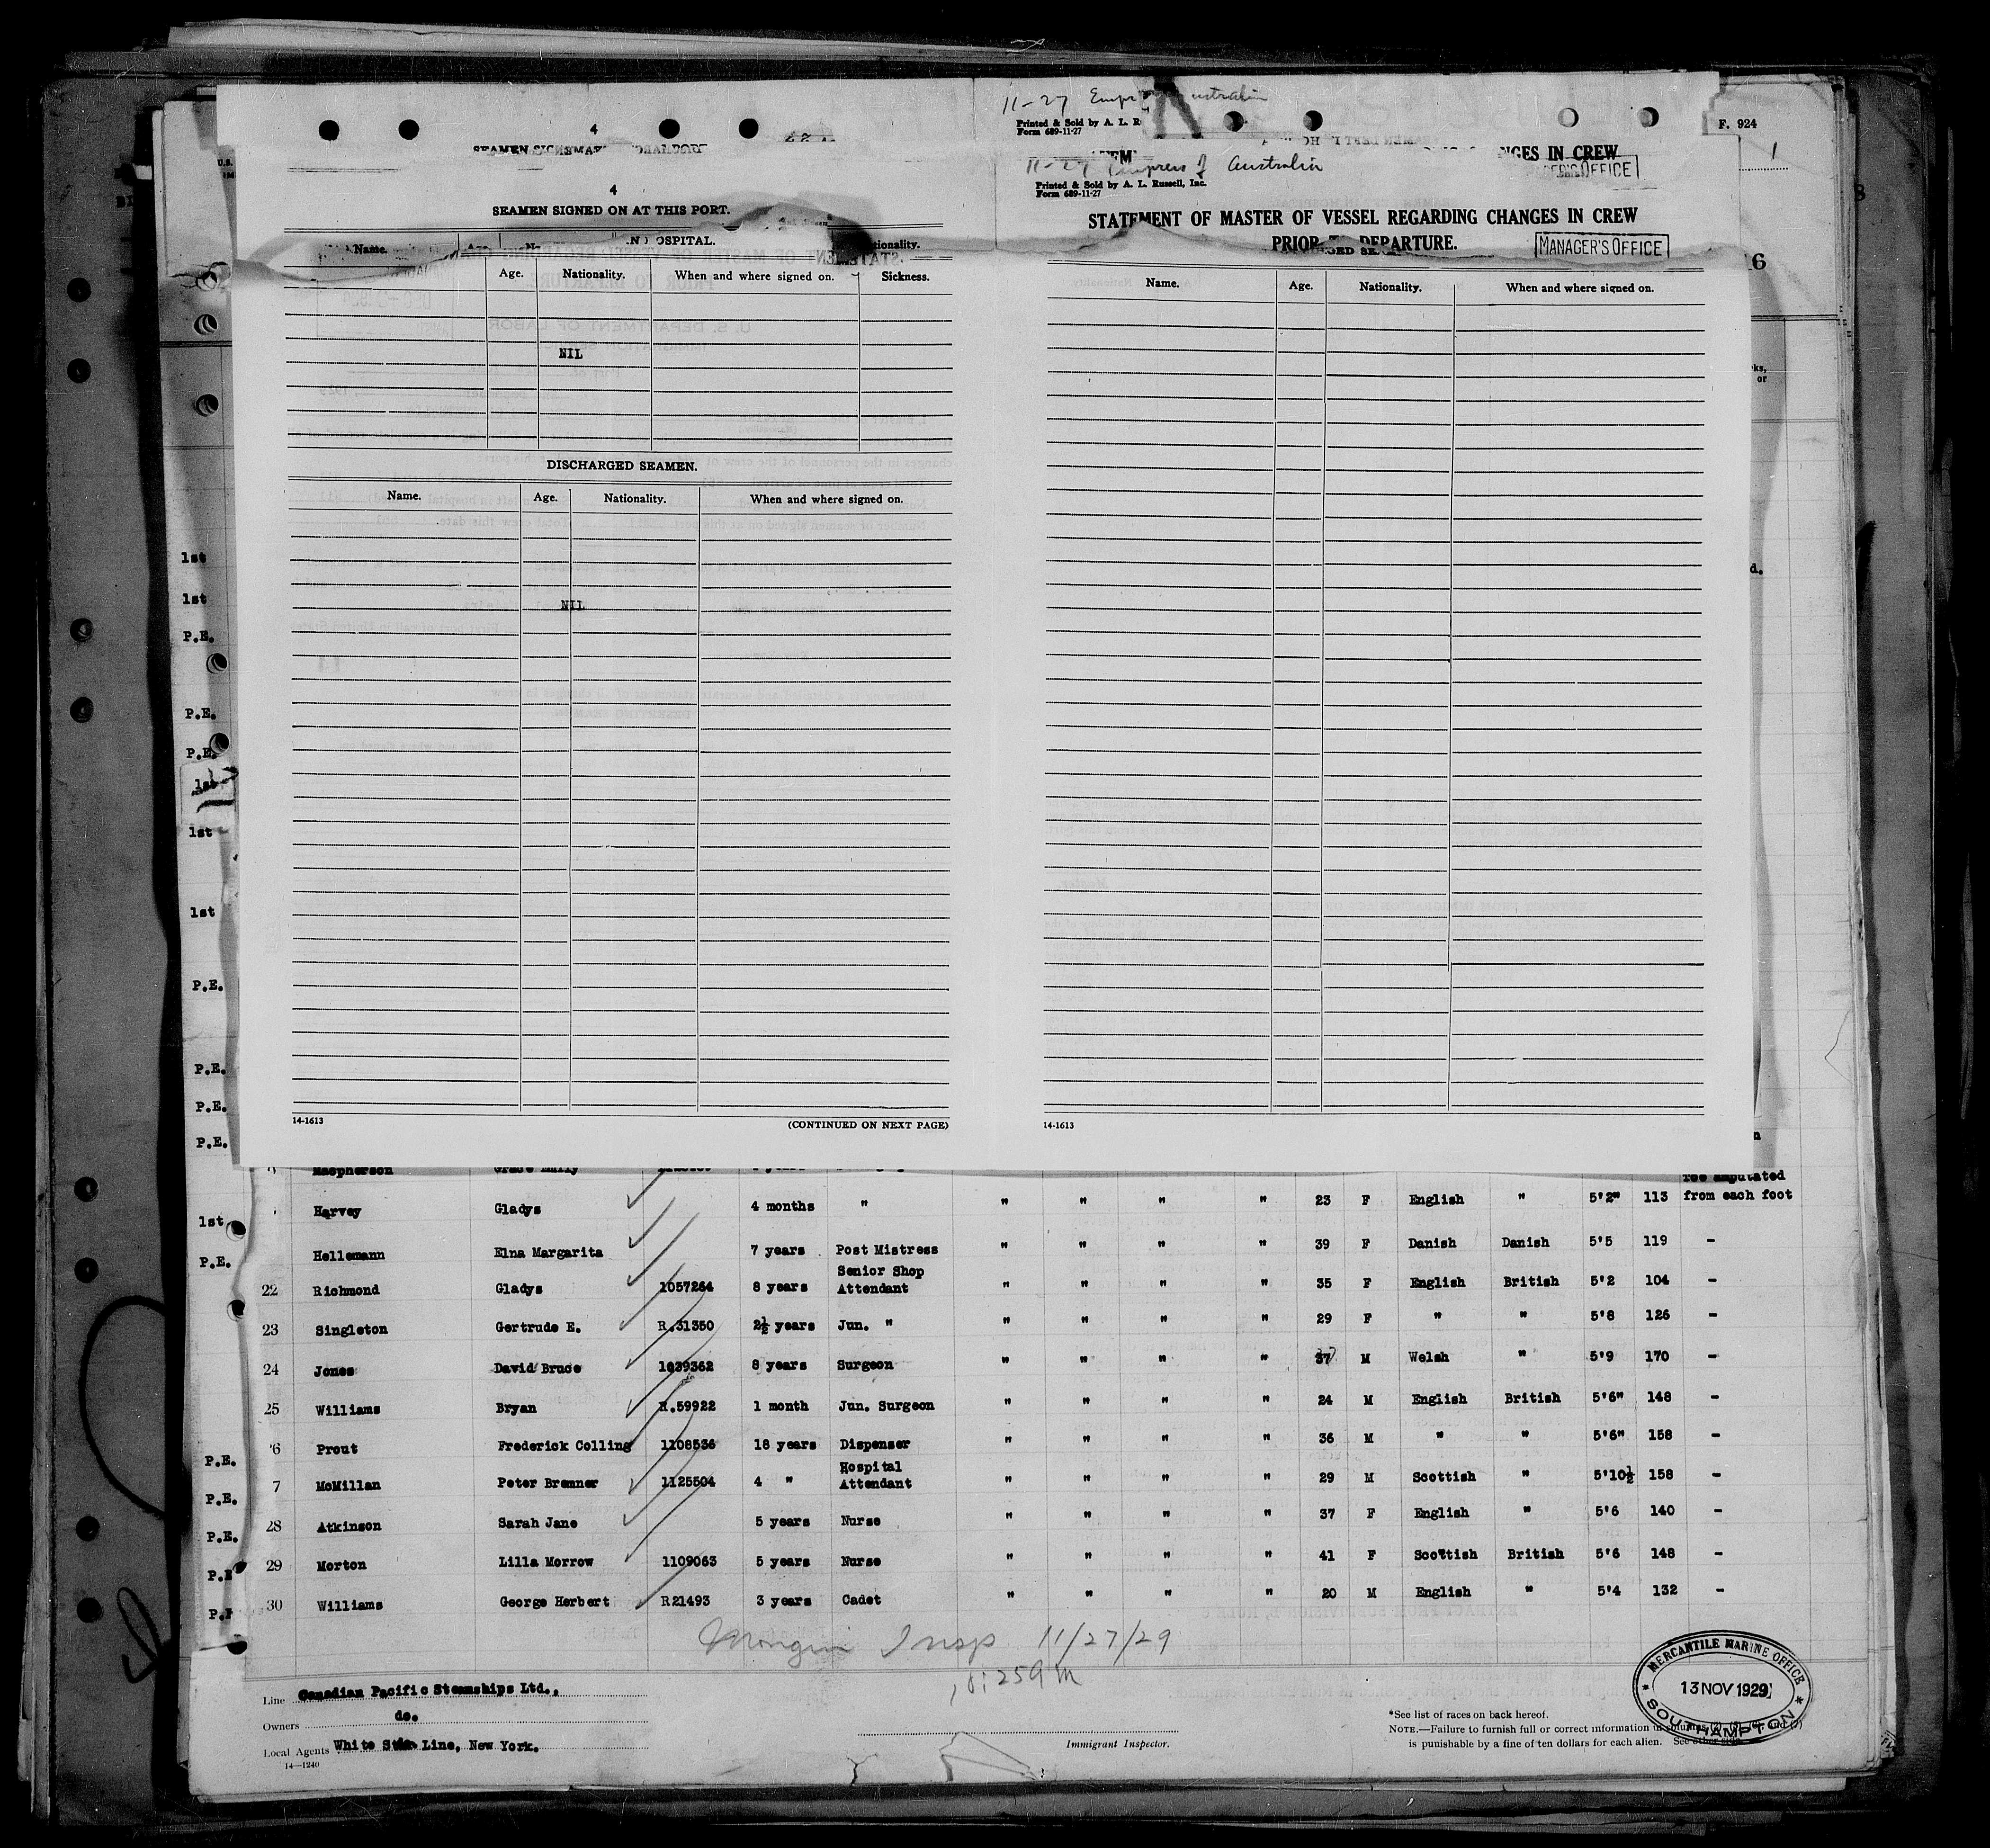 11-27 Empr ustralia
Printed & Sold by A. L. R
Form 689-11-27
F. 924
4
NGES IN CREW
1
11-27 Empress of Australia
Printed & Sold by A. L. Russell, Inc.
Form 689-11-27
4
SEAMEN SIGNED ON AT THIS PORT.
STATEMENT OF MASTER OF VESSEL REGARDING CHANGES IN CREW
PRIOR TO DEPARTURE.
MANAGER'S OFFICE
Name.
OSPITAL.
tionality.
6
Age. Nationality. When and where signed on. Sickness.
NIL
DISCHARGED SEAMEN.
Name. Age. Nationality. When and where signed on.
NIL
14-1613 (CONTINUED ON NEXT PAGE)
Name. Age. Nationality. When and where signed on.
14-1613
ks,
or
d.
1st
1st
P.E.
P.E.
P.E.
1st
1st
1st
P.E.
P.E.
P.E.
P.E.
1st
P.E.
P.E.
P.E.
P.E.
Macpherson Grace Emily
Toe amputated
Harvey Gladys 4 months " " " " " 23 F English " 5'2" 113 from each foot
Hellemann Elna Margarita 7 years Post Mistress " " " " 39 F Danish Danish 5'5 119 -
22 Richmond Gladys 1057264 8 years Senior Shop Attendant " " " " 35 F English British 5'2 104 -
23 Singleton Gertrude E. R.31350 2½ years Jun. " " " " " 29 F " " 5'8 126 -
24 Jones David Bruce 1039362 8 years Surgeon " " " " 37 M Welsh " 5'9 170 -
25 Williams Bryan R.59922 1 month Jun. Surgeon " " " " 24 M English British 5'6" 148 -
6 Prout Frederick Colling 1108536 18 years Dispenser " " " " 36 M " " 5'6" 158 -
7 McMillan Peter Bremner 1125504 4 " Hospital Attendant " " " " 29 M Scottish " 5'10½ 158 -
28 Atkinson Sarah Jane 5 years Nurse " " " " 37 F English " 5'6 140 -
29 Morton Lilla Morrow 1109063 5 years Nurse " " " " 41 F Scottish British 5'6 148 -
30 Williams George Herbert R21493 3 years Cadet " " " " 20 M English " 5'4 132 -
Insp 11/27/29
Line Canadian Pacific Steamships Ltd.,
Owners do.
Local Agents White Star Line, New York.
14-1240
Immigrant Inspector.
*See list of races on back hereof.
NOTE.—Failure to furnish full or correct information in columns
is punishable by a fine of ten dollars for each alien. See other side.
MERCANTILE MARINE OFFICE
13 NOV 1929
SOUTHAMPTON